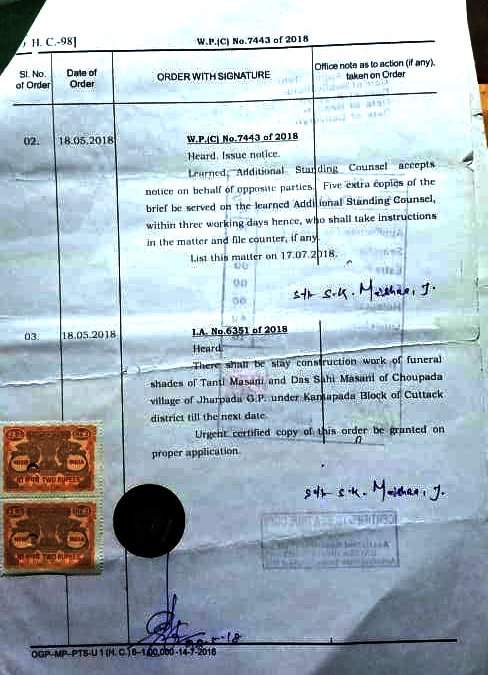 H. C.-98]
W.P.(C) No.7443 of 2018
Sl. No. of Order
Date of Order
ORDER WITH SIGNATURE
Office note as to action (if any), taken on Order
02.
18.05.2018
W.P.(C) No.7443 of 2018
Heard. Issue notice.
Learned, Additional Standing Counsel accepts
notice on behalf of opposite parties. Five extra copies of the
brief be served on the learned Additional Standing Counsel,
within three working days hence, who shall take instructions
in the matter and file counter, if any.
List this matter on 17.07.2018.
Sd/- S.K. Mishra, J.
03.
18.05.2018
I.A. No.6351 of 2018
Heard.
There shall be stay construction work of funeral
shades of Tanti Masani and Das Sahi Masani of Choupada
village of Jharpada G.P. under Kantapada Block of Cuttack
district till the next date.
Urgent certified copy of this order be granted on
proper application.
Sd/- S.K. Mishra, J.
INDIA
दो रुपये TWO RUPEES
INDIA
दो रुपये TWO RUPEES
OGP-MP-PTS-U 1 (H. C.) 6-1,00,000-14-7-2016